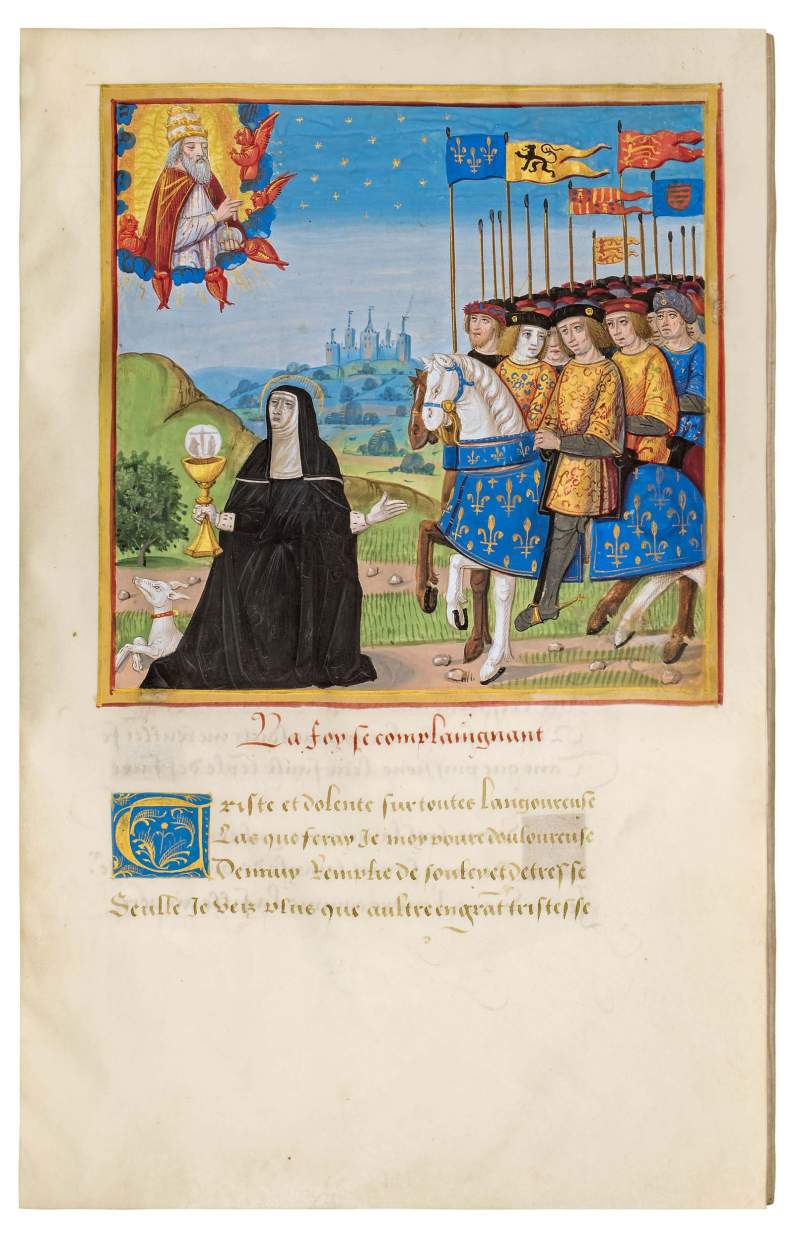 La foy se complaingnant
Triste et dolente sur toutes langoureuse
Las que feray Je moy povre douloureuse
Dennuy Remplie de soulcy et detresse
Seulle Je veiz plus que aultre en grāt tristesse